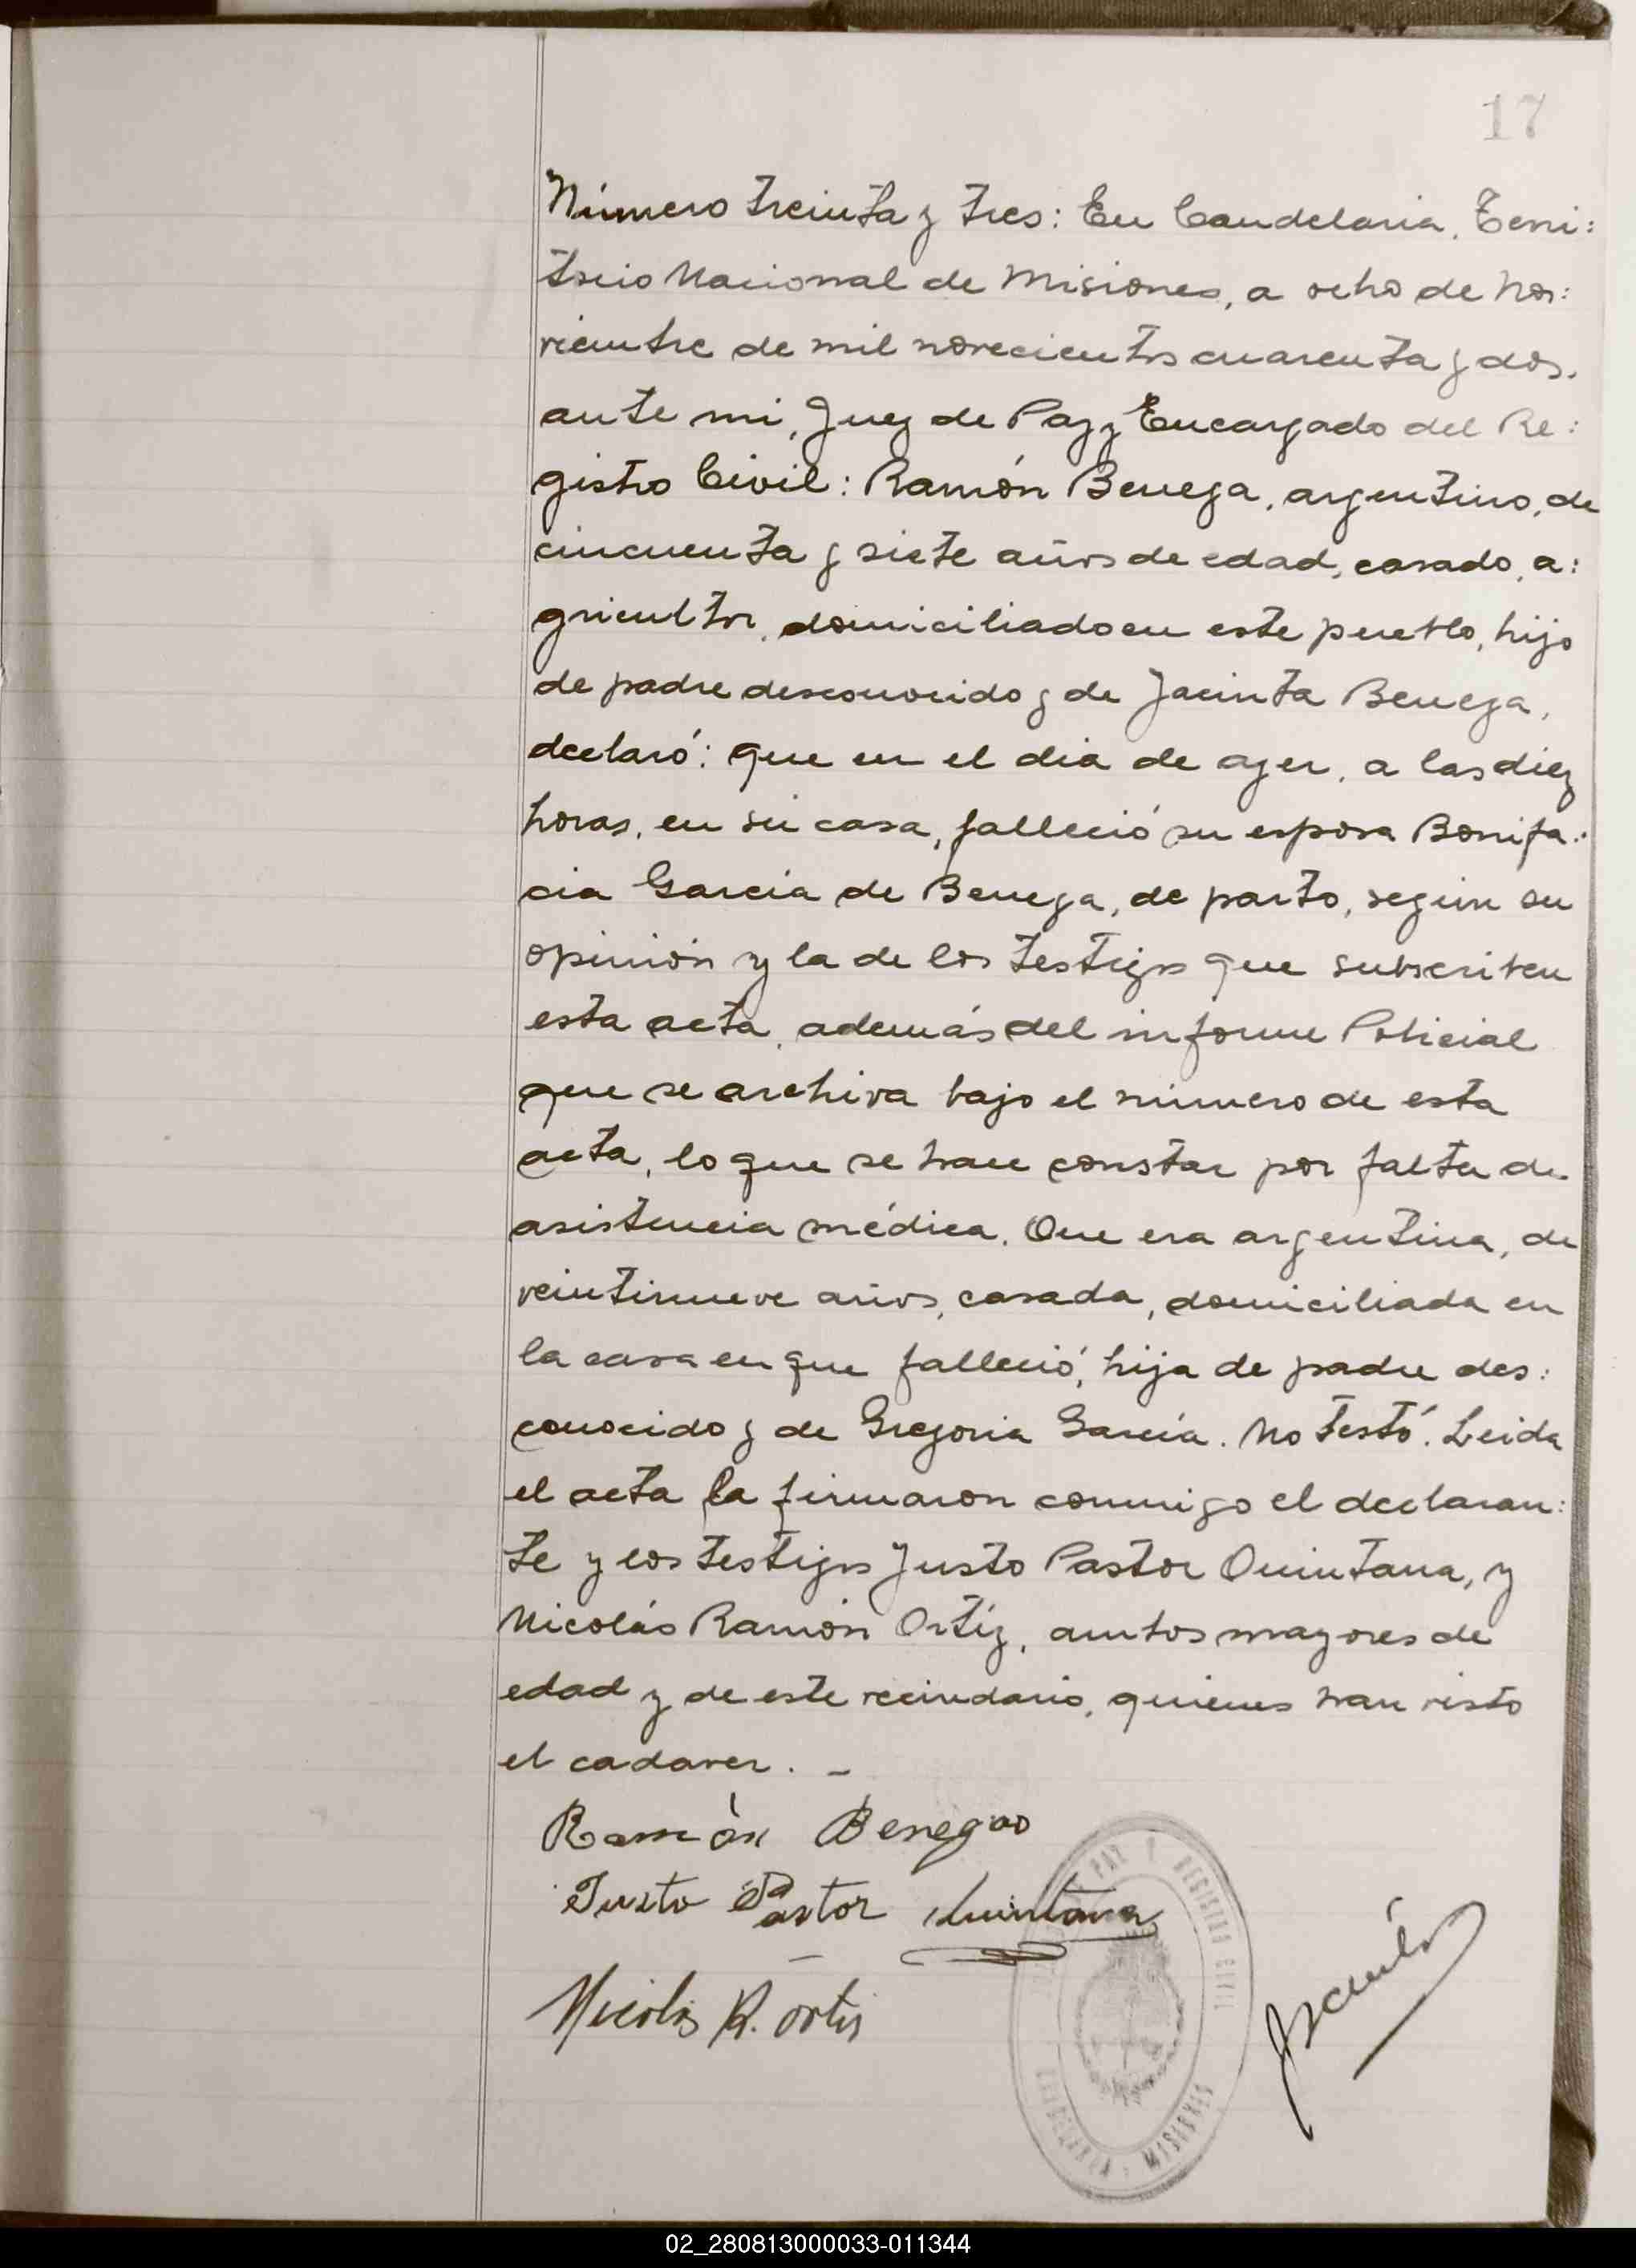 17
Número treinta y tres: En Candelaria, Terri:
torio Nacional de Misiones, a ocho de No:
viembre de mil novecientos cuarenta y dos,
ante mi, Juez de Paz y Encargado del Re:
gistro Civil: Ramón Benega, argentino, de
cincuenta y siete años de edad, casado, a:
gricultor, domiciliado en este pueblo, hijo
de padre desconocido y de Jacinta Benega,
declaró: que en el dia de ayer, a las diez
horas, en su casa, falleció su esposa Bonifa:
cia García de Benega, de parto, según su
opinión y la de los testigos que subscriben
esta acta, además del informe Policial
que se archiva bajo el número de esta
acta, lo que se hace constar por falta de
asistencia médica. Que era argentina, de
veintinueve años, casada, domiciliada en
la casa en que falleció, hija de padre des:
conocido y de Gregoria García. No testó. Leida
el acta la firmaron conmigo el declaran:
te y los testigos Justo Pastor Quintana, y
Nicolás Ramón Ortíz, ambos mayores de
edad y de este vecindario, quienes han visto
el cadaver. -
Ramón Benegas
Justo Pastor Quintana
Nicolás R. Ortis
DE PAZ Y REGISTRO CIVIL
CANDELARIA - MISIONES
02_280813000033-011344